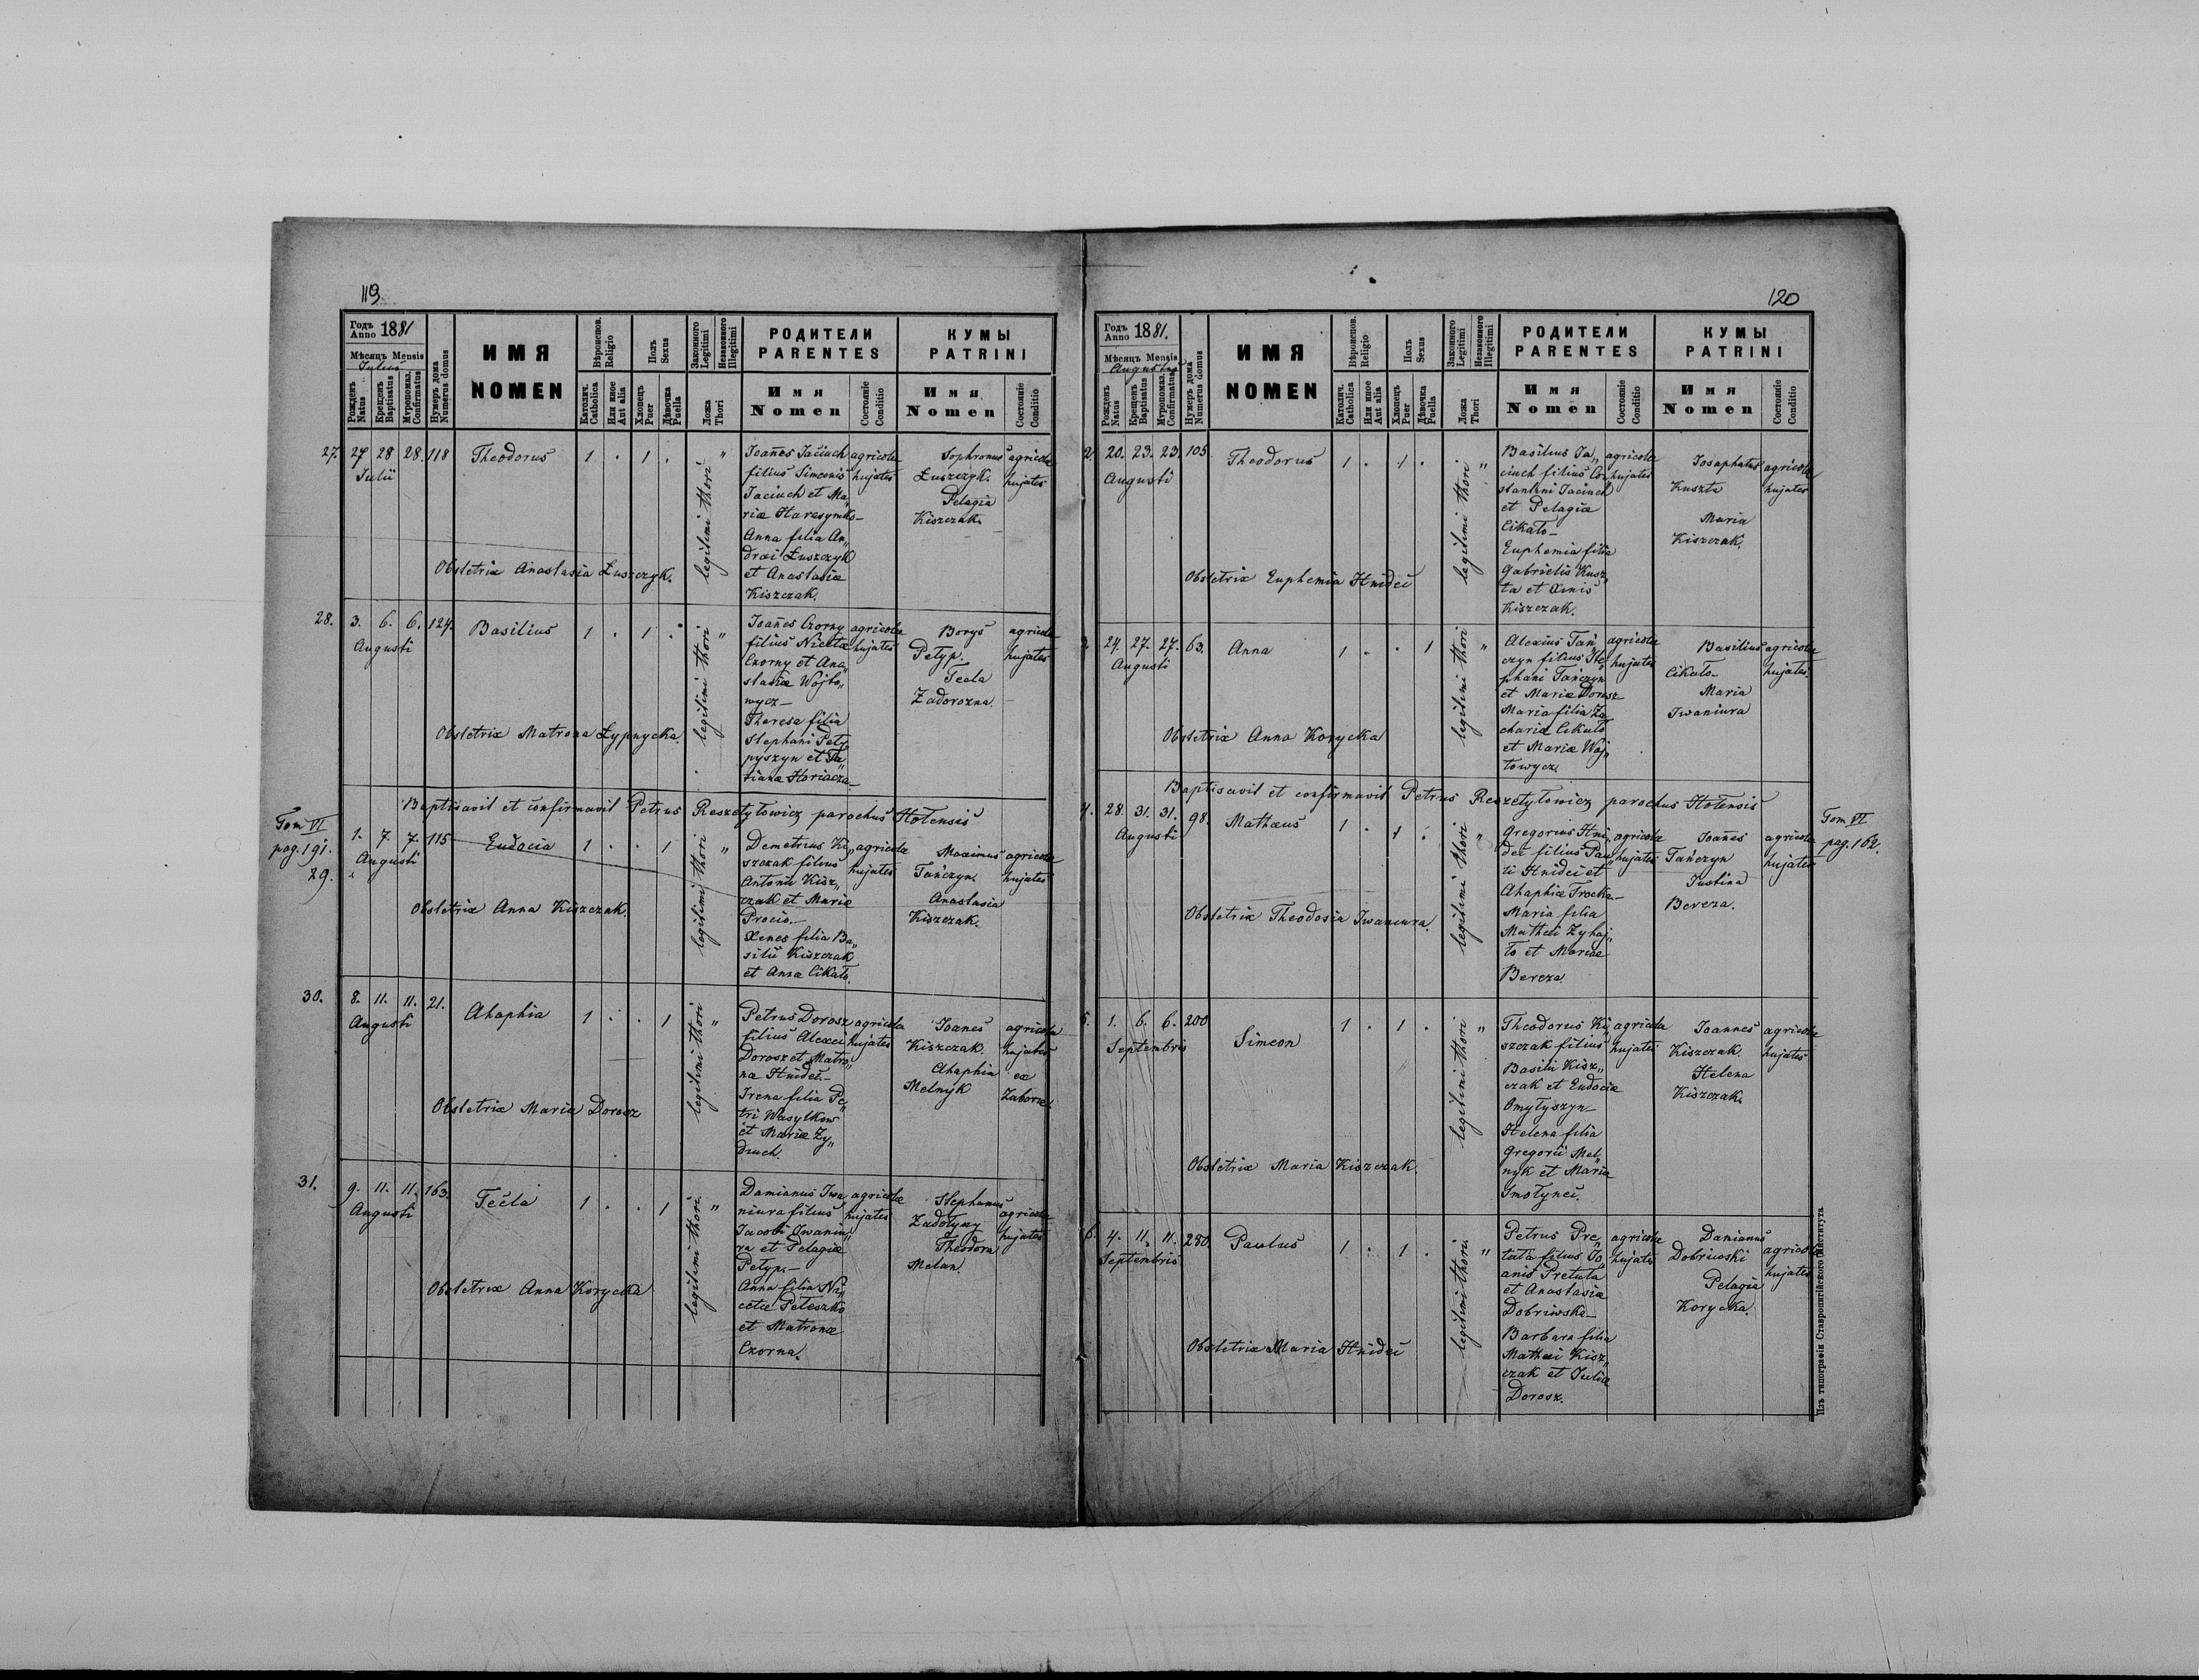 119
Годъ Anno 1881
Мѣсяцъ Mensis
Julius
Рожденъ Natus
Крещенъ Baptisatus
Мѵропомаз. Confirmatus
Нумеръ дома Numerus domus
ИМЯ
NOMEN
Вѣроиспов. Religio
Католич. Catholica
Или иное Aut alia
Полъ Sexus
Хлопецъ Puer
Дѣвочка Puella
Законного Legitimi
Незаконного Illegitimi
Ложа Thori
РОДИТЕЛИ
PARENTES
Имя
Nomen
Состояніе Conditio
КУМЫ
PATRINI
Имя
Nomen
Состояніе Conditio
27. 27 28 28. 118 Theodorus 1 . 1 .
Julii
legitimi thori "
Joañes Jaciuch
filius Simeonis
Jaciuch et Ma„
riæ Harasymko–
Anna filia An„
dræi Łuszczyk
et Anastasiæ
Kiszczak.
agricola
hujates
Sophronus
Łuszczyk.
Pelagia
Kiszczak.
agricola
hujates
Obstetrix Anastasia Łuszczyk.
28. 3. 6. 6. 124. Basilius 1 . 1 .
Augusti
legitimi thori "
Joañes Czorny
filius Nicetæ
Czorny et Ana„
stasiæ Wojto„
wycz–
Theresa filia
Stephani Pety„
pyszyn et Ta„
tianæ Horiacza–
agricola
hujates
Borys
Petyp.
Tecla
Zadorozna.
agricola
hujates
Obstetrix Matrona Łypnycka.
Baptisavit et confirmavit Petrus Reszetyłowicz parochus Hołensis
Tom VI
pag. 191.
29. 1. 7. 7. 115 Eudocia 1 . . 1
Augusti
legitimi thori "
Demetrius Ki„
szczak filius
Antonii Kisz„
czak et Mariæ
Procio.–
Xenes filia Ba„
silii Kiszczak
et Annæ Cikało.
agricola
hujates
Maximus
Tańczyn.
Anastasia
Kiszczak.
agricola
hujates
Obstetrix Anna Kiszczak.
30. 8. 11. 11. 21. Ahaphia 1 . . 1
Augusti
legitimi thori "
Petrus Dorosz
filius Alexei
Dorosz et Matro„
næ Hnideć.–
Irena filia Pe„
tri Wasylkow
et Mariæ Zy„
druch.
agricola
hujates
Joanes
Kiszczak.
Ahaphia
Melnyk
agricola
hujates
ex
Zaborze.
Obstetrix Maria Dorosz
31. 9. 11. 11. 163. Tecla 1 . . 1
Augusti
legitimi thori. "
Damianus Iwa„
niura filius
Jacobi Iwaniu„
ra et Pelagiæ
Petyp.–
Anna filia Ni„
cetæ Peteszko
et Matronæ
Czorna.
agricolæ
hujates
Stephanus
Zadołyny
Theodora
Melan.
agricola
hujates
Obstetrix Anna Korycka
120
Годъ Anno 1881.
Мѣсяцъ Mensis
Augustus
Рожденъ Natus
Крещенъ Baptisatus
Мѵропомаз. Confirmatus
Нумеръ дома Numerus domus
ИМЯ
NOMEN
Вѣроиспов. Religio
Католич. Catholica
Или иное Aut alia
Полъ Sexus
Хлопецъ Puer
Дѣвочка Puella
Законного Legitimi
Незаконного Illegitimi
Ложа Thori
РОДИТЕЛИ
PARENTES
Имя
Nomen
Состояніе Conditio
КУМЫ
PATRINI
Имя
Nomen
Состояніе Conditio
2. 20. 23. 23. 105. Theodorus 1 . 1 .
Augusti
legitimi thori "
Basilius Ja„
ciuch filius Co„
stantini Jaciuch
et Pelagiæ
Cikało–
Euphemia filia
Gabrielis Kusz„
ta et Xenis
Kiszczak.
agricola
hujates
Josaphatus
Kuszta
Maria
Kiszczak.
agricola
hujates
Obstetrix Euphemia Hnideć
3. 24. 27. 27. 63. Anna 1 . . 1
Augusti
legitimi thori "
Alexius Tań„
czyn filius Ste„
phani Tańczyn
et Mariæ Dorosz–
Maria filia Za„
chariæ Cikało
et Mariæ Woj„
towycz.
agricola
hujates
Basilius
Cikało–
Maria
Iwaniura
agricola
hujates.
Obstetrix Anna Korycka
Baptisavit et confirmavit Petrus Reszetyłowicz parochus Hołensis
4. 28. 31. 31. 98. Mathæus 1 . 1 .
Augusti
legitimi thori "
Gregorius Hni„
deć filius Pau„
li Hnideć et
Ahaphiæ Trocka–
Maria filia
Mathei Zyhaj„
ło et Mariae
Bereza.
agricola
hujates
Joañes
Tańczyn
Justina
Bereza.
agricola
hujates
Tom VI
pag. 162.
Obstetrix Theodosia Iwaniura.
5. 1. 6. 6. 200 Simeon 1 . 1 .
Septembris
legitimi thori "
Theodorus Ki„
szczak filius
Basilii Kisz„
czak et Eudociæ
Omytyszyn–
Helena filia
Gregorii Mel„
nyk et Maria
Smołyneć.
agricola
hujates
Joannes
Kiszczak.
Helena
Kiszczak.
agricola
hujates
Obstetrix Maria Kiszczak.
6. 4. 11. 11. 280. Paulus 1 . 1 .
Septembris
legitimi thori. "
Petrus Pre„
tuta filius Jo„
anis Pretuta
et Anastasiæ
Dobriwska–
Barbara filia
Mathæi Kisz„
czak et Juliæ
Dorosz.
agricola
hujates
Damianus
Dobriwoski
Pelagia
Korycka.
agricola
hujates
Obstetrix Maria Hnideć
Изъ типографіи Ставропигійского Института